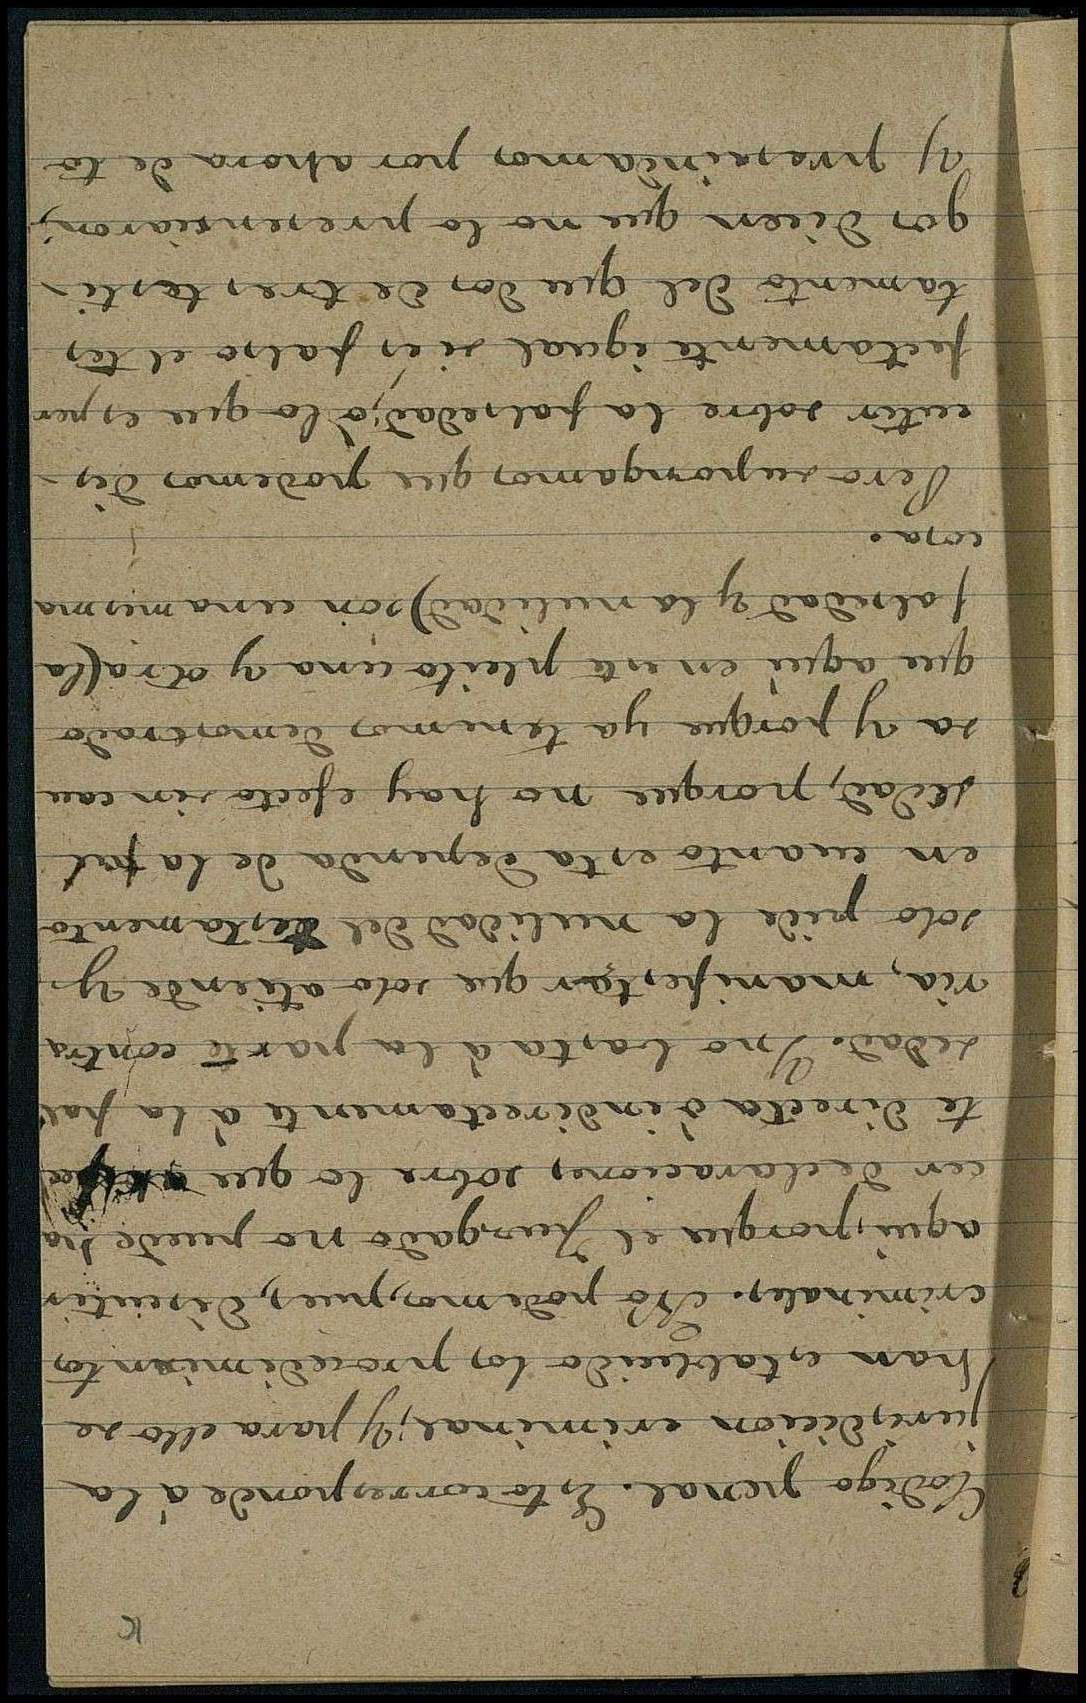 K
Código penal. Esto corresponde á la
jurisdicion criminal; y para ello se
han establecido los procedimientos
criminales. No podemos, pues, discutir
aquí, porque el Juzgado no puede ha
cer declaraciones sobre lo que
te directa ó indirectamente á la fal
sedad. Y no basta á la parte contra
ria, manifestar que solo atiende y
solo pide la nulidad del testamento
en cuanto esta dependa de la fal
sedad, porque no hay efecto sin cau
sa y porque ya tenemos demostrado
que aquí en este pleito una y otra (la
falsedad y la nulidad) son una misma
cosa.
Pero supongamos que podemos dis-
cutir sobre la falsedad, ó lo que es per
fectamente igual si es falso el tes
tamento del que dos de tres testi-
gos dicen que no lo presenciaron;
y prescindamos por ahora de to